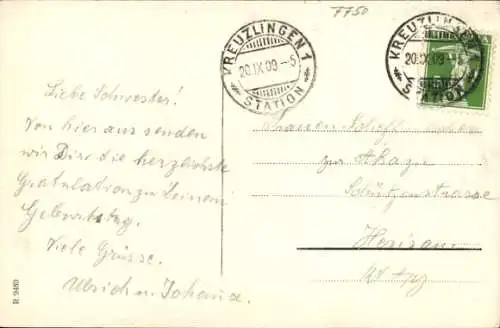 7750
KREUZLINGEN 1
20.IX.09-5
STATION
KREUZLINGEN
20.IX.09
STATION
Liebe Schwester!
Von hier aus senden
wir Dir die herzlichste
Gratulation zu Deinem
Geburtstag.
Viele Grüsse.
Ulrich u. Johana.
zur
Schützenstrasse
Herisau
R 9480